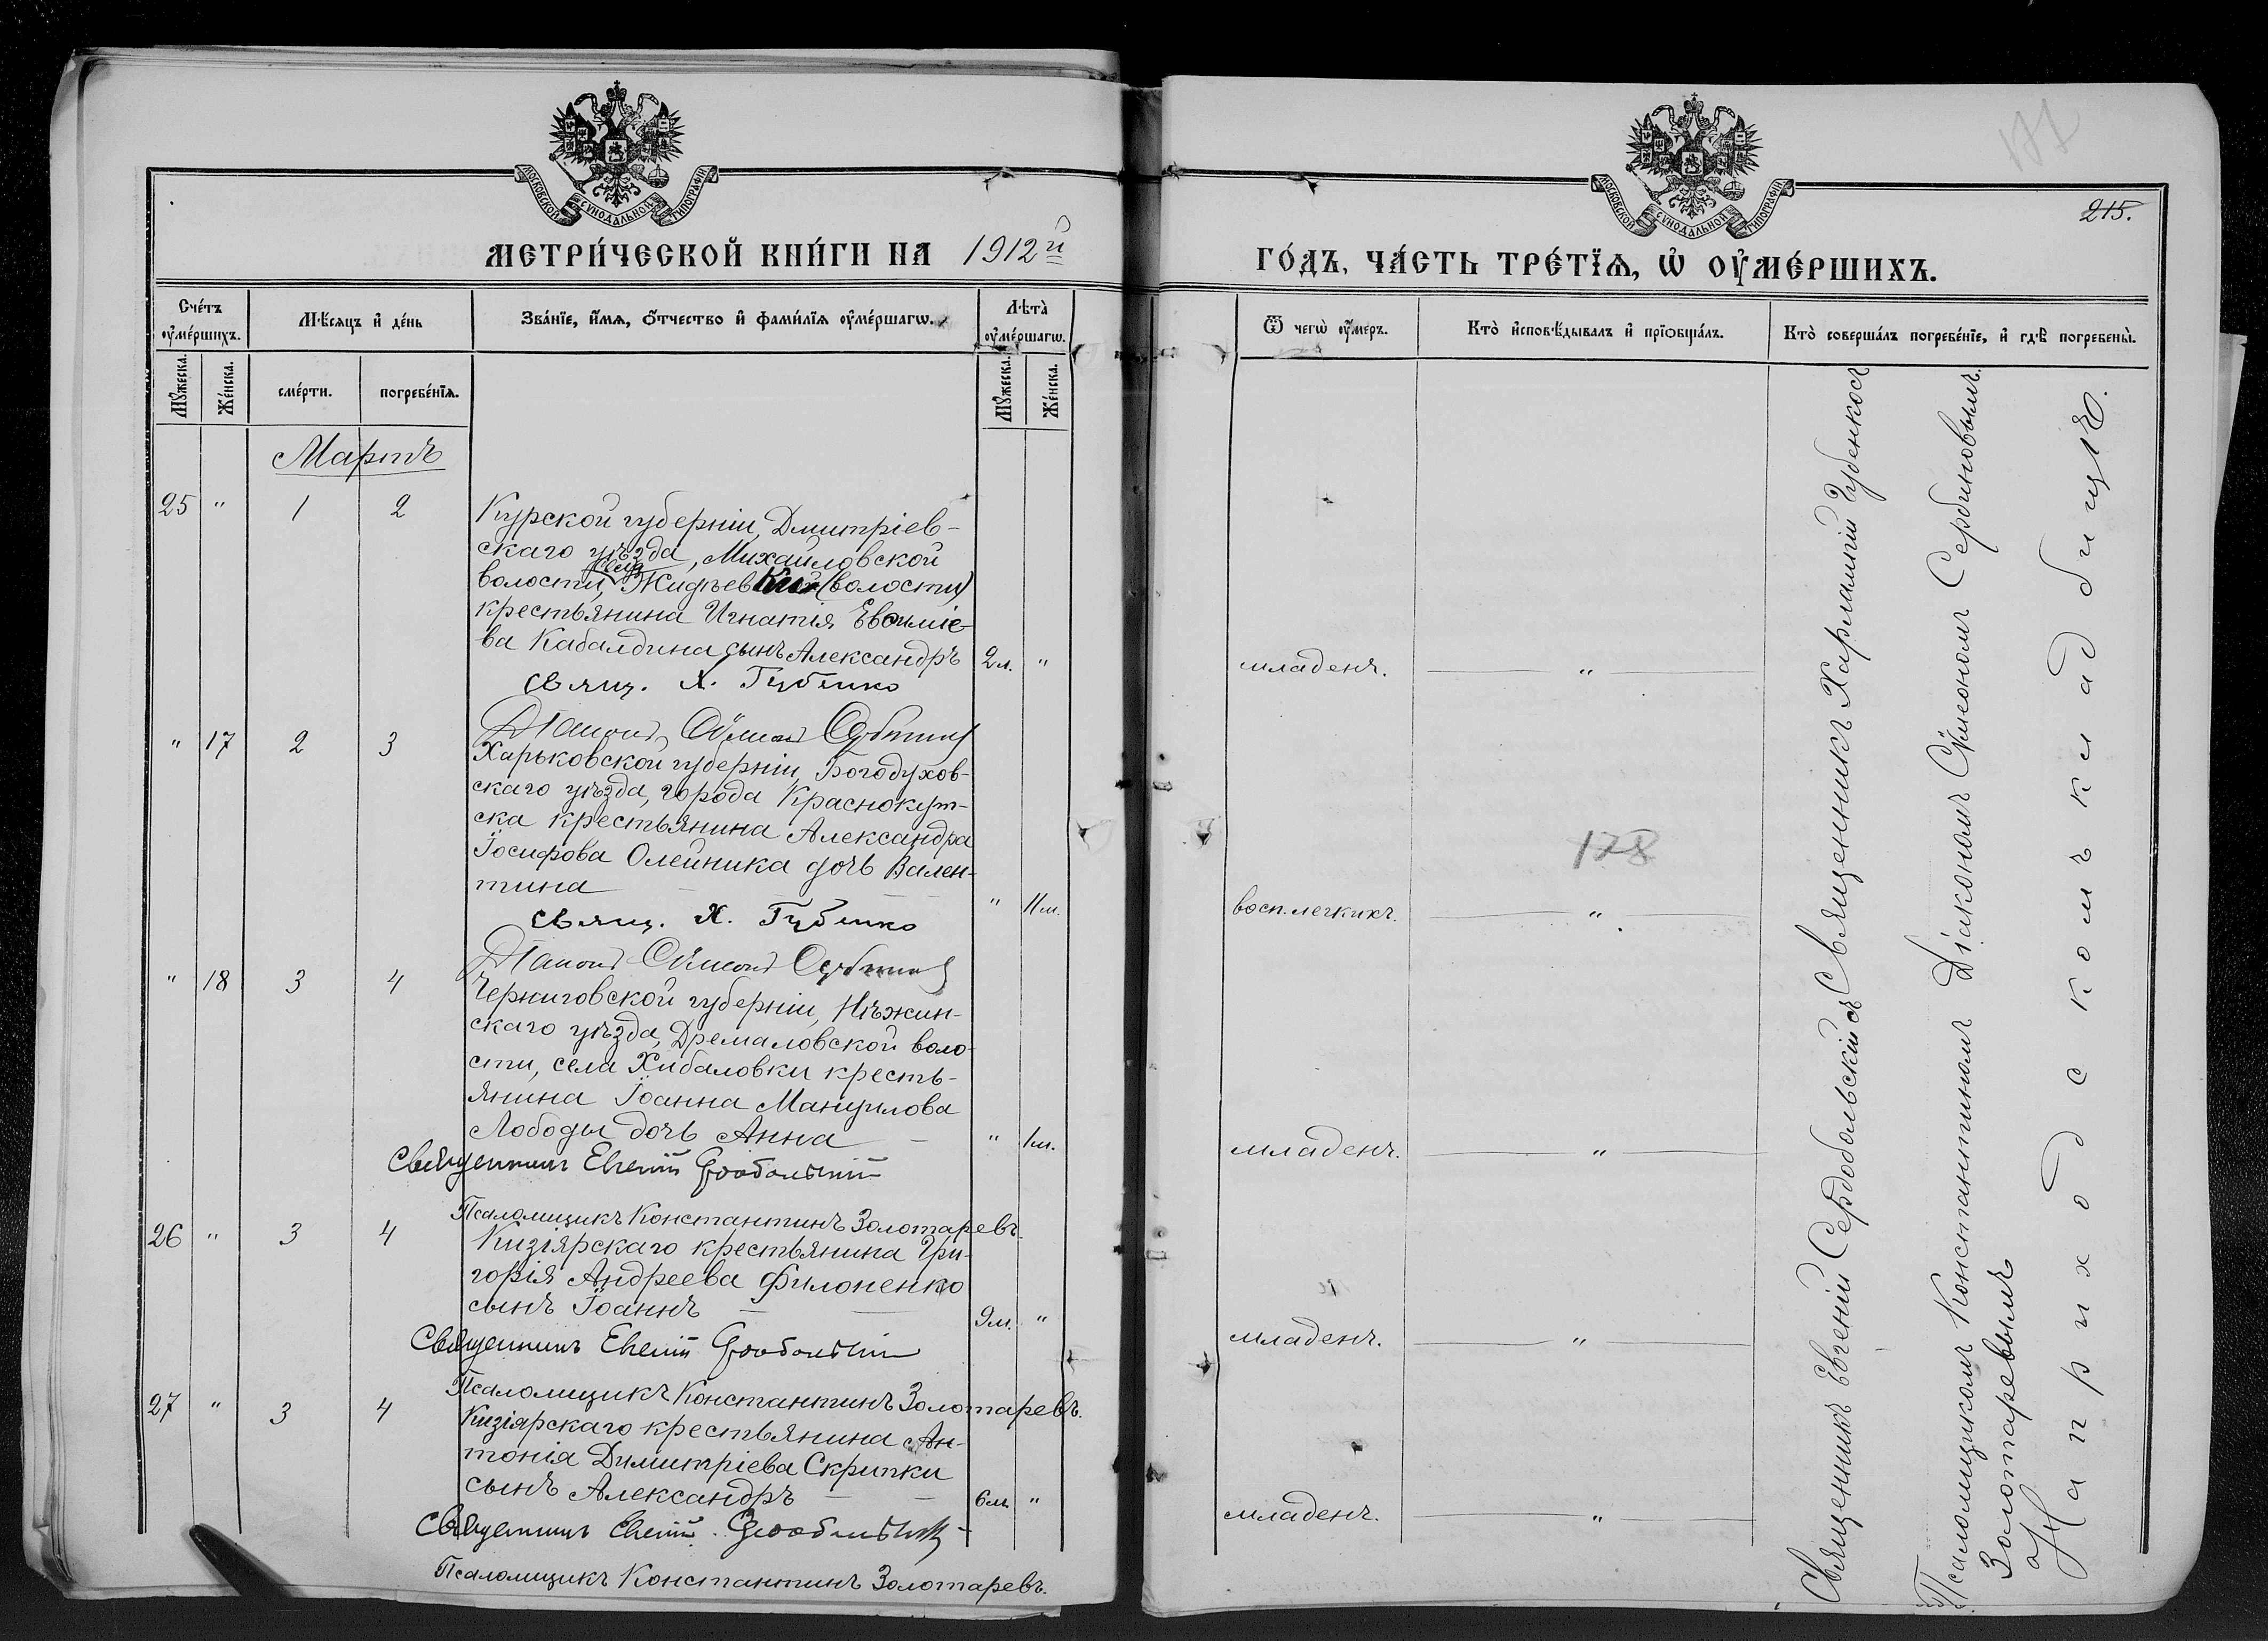 МОСКОВСКОЙ СУНОДАЛЬНОЙ ТИПОГРАФІИ
МЕТРИ́ЧЕСКОЙ КНИ́ГИ НА 1912й
Сче́тъ ᲂу҆ме́ршихъ.
Мѣ́сяцъ и҆ де́нь
Зва́нїе, и҆́мѧ, ѻ҆́тчество и҆ фами́лїѧ ᲂу҆ме́ршагѡ.
Лѣ́та ᲂу҆ме́ршагѡ.
Мꙋ́жеска.
Же́нска.
сме́рти.
погребе́нїѧ.
Мꙋ́жеска.
Же́нска.
Мартъ
25 " 1 2
Курской губерніи, Дмитріев-
скаго уѣзда, Михайловской
волости, (волости)
крестьянина Игнатія Евѳиміе-
ва Кабалдина сынъ Александръ 2л. "
Свящ. Х. Губенко
Діаконъ Сѵмеонъ
" 17 2 3
Харьковской губерніи, Богодухов-
скаго уѣзда, города Краснокут-
ска крестьянина Александра
Іосифова Олейника дочь Вален-
тина " 11м.
Свящ. Х. Губенко
Діаконъ Сѵмеонъ
" 18 3 4
Черниговской губерніи, Нѣжин-
скаго уѣзда, Дремаловской воло-
сти, села Хибаловки кресть-
янина Іоанна Мануилова
Лободы дочь Анна " 1м.
Священникъ Евгеній Сердобольскій
Псаломщикъ Константинъ Золотаревъ.
26 " 3 4
Кизіярскаго крестьянина Гри-
горія Андреева Филоненко
сынъ Іоаннъ 9м. "
Священникъ Евгеній Сердобольскій
Псаломщикъ Константинъ Золотаревъ.
27 " 3 4
Кизіярскаго крестьянина Ан-
тонія Димитріева Скрипки
сынъ Александръ 6м. "
Священникъ Евгеній Сердобольскій
Псаломщикъ Константинъ Золотаревъ.
МОСКОВСКОЙ СУНОДАЛЬНОЙ ТИПОГРАФІИ
215.
ГО́ДЪ, ЧА́СТЬ ТРЕ́ТЇѦ, Ѡ҆ ОУ҆МЕ́РШИХЪ.
Ѿ чегѡ̀ ᲂу҆́меръ.
Кто̀ и҆сповѣ́дывалъ и҆ прїѡбща́лъ.
Кто̀ соверша́лъ погребе́нїе, и҆ гдѣ̀ погребены̀.
младенч. "
178
восп. легкихъ. "
младенч. "
младенч. "
младенч. "
Священникъ Евгеній Сердобольскій съ Священникъ Харлампій Губенкосъ
Псаломщикомъ Константиномъ Діакономъ Сѵмеономъ Сербиновымъ.
Золотаревымъ
На приходскомъ кладбищѣ.